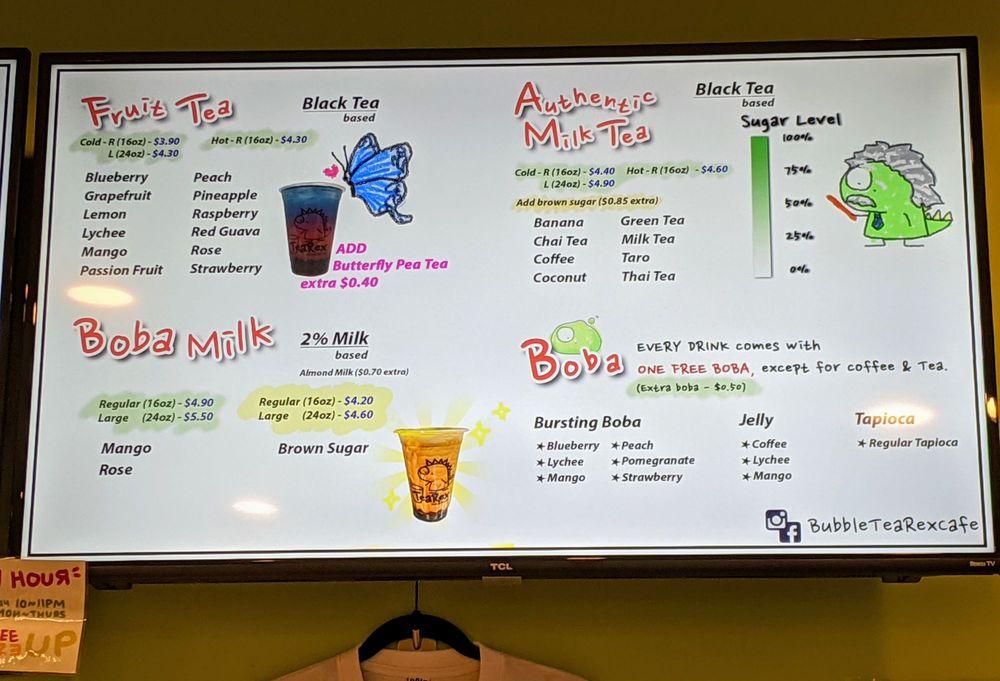 Fruit Tea
Black Tea
based
Cold - R (16oz) - $3.90
L (24oz) - $4.30
Hot - R (16oz) - $4.30
Blueberry
Grapefruit
Lemon
Lychee
Mango
Passion Fruit
Peach
Pineapple
Raspberry
Red Guava
Rose
Strawberry
TeaRex
ADD
Butterfly Pea Tea
extra $0.40
Authentic
Milk Tea
Black Tea
based
Cold - R (16oz) - $4.40
L (24oz) - $4.90
Hot - R (16oz) - $4.60
Add brown sugar ($0.85 extra)
Banana
Chai Tea
Coffee
Coconut
Green Tea
Milk Tea
Taro
Thai Tea
Sugar Level
100%
75%
50%
25%
0%
Boba Milk
2% Milk
based
Almond Milk ($0.70 extra)
Regular (16oz) - $4.90
Large (24oz) - $5.50
Mango
Rose
Regular (16oz) - $4.20
Large (24oz) - $4.60
Brown Sugar
TeaRex
Boba
EVERY DRINK comes with
ONE FREE BOBA, except for coffee & Tea.
(Extra boba - $0.50)
Bursting Boba
★ Blueberry
★ Lychee
★ Mango
★ Peach
★ Pomegranate
★ Strawberry
Jelly
★ Coffee
★ Lychee
★ Mango
Tapioca
★ Regular Tapioca
BubbleTeaRexcafe
TCL
Roku TV
HOUR:
10~11PM
MON~THURS
UP